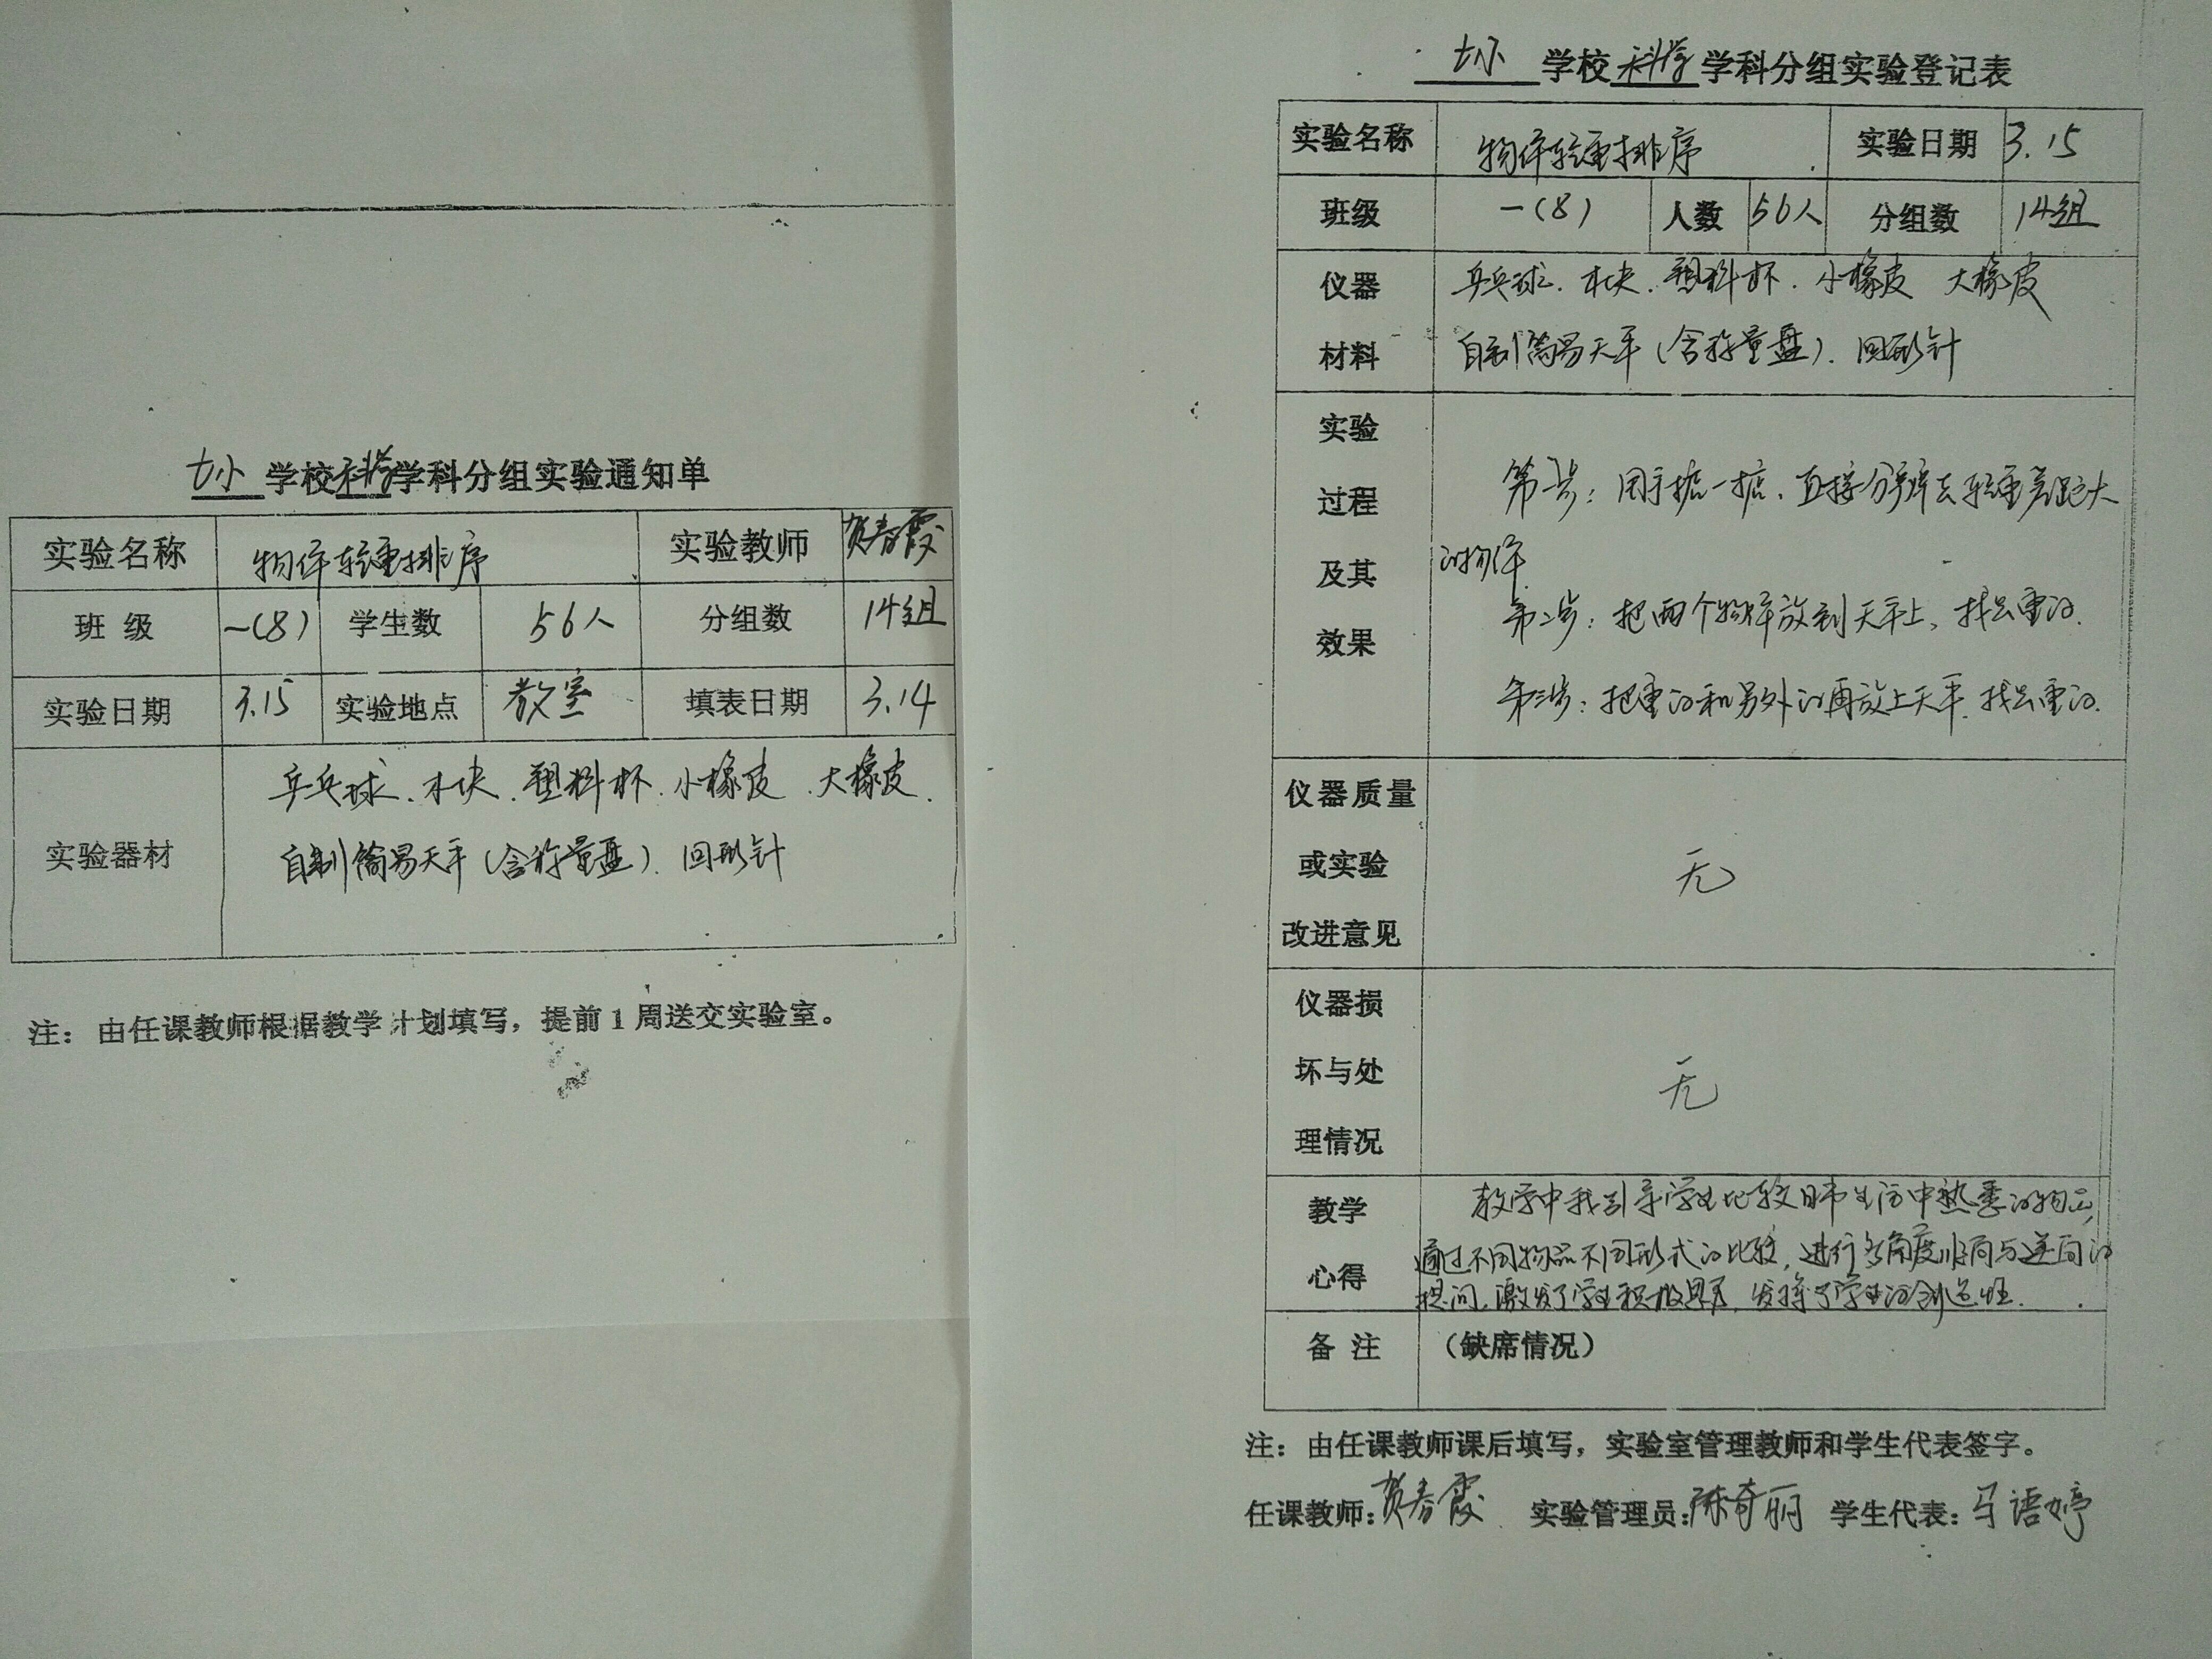 七小 学校 科学 学科分组实验通知单
实验名称 物体轻重排序 实验教师 贺春霞
班 级 一(8) 学生数 56人 分组数 14组
实验日期 3.15 实验地点 教室 填表日期 3.14
实验器材 乒乓球、木块、塑料杯、小橡皮、大橡皮、
自制简易天平(含称量盘)、回形针
注：由任课教师根据教学计划填写，提前1周送交实验室。
七小 学校 科学 学科分组实验登记表
实验名称 物体轻重排序 实验日期 3.15
班级 一(8) 人数 56人 分组数 14组
仪器材料 乒乓球、木块、塑料杯、小橡皮 大橡皮
自制简易天平(含称量盘)、回形针
实验过程及其效果
第一步：用手掂一掂、直接分辨去轻重差距大
的物体
第二步：把两个物体放到天平上，找出重的.
第三步：把重的和另外的再放上天平,找出重的.
仪器质量或实验改进意见 无
仪器损坏与处理情况 无
教学心得 教学中我引导学生比较日常生活中熟悉的物品，
通过不同物品不同形式的比较，进行多角度顺向与逆向的
提问，激发了学生积极思考，发挥了学生的创造性.
备 注 （缺席情况）
注：由任课教师课后填写，实验室管理教师和学生代表签字。
任课教师：贺春霞 实验管理员：陈奇丽 学生代表：马语婷